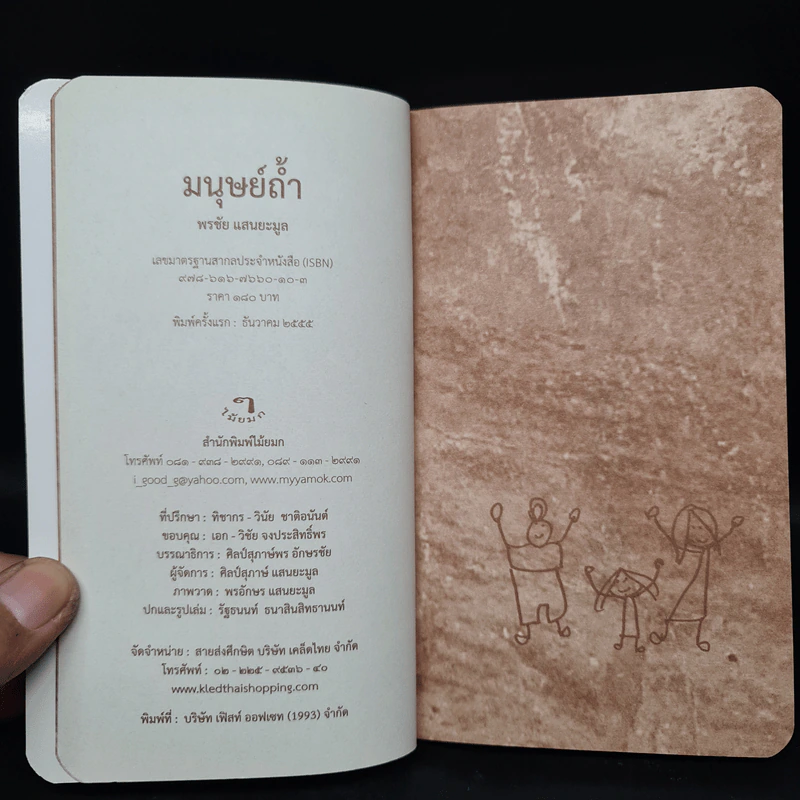 มนุษย์ถ้ำ
พรชัย แสนยะมูล
เลขมาตรฐานสากลประจำหนังสือ (ISBN)
๙๗๘-๖๑๖-๗๖๖๐-๑๐-๓
ราคา ๑๘๐ บาท
พิมพ์ครั้งแรก : ธันวาคม ๒๕๕๕
ๆ
ไม้ยมก
สำนักพิมพ์ไม้ยมก
โทรศัพท์ ๐๘๑ - ๙๓๘ - ๒๙๙๑, ๐๘๙ - ๑๑๓ - ๒๙๙๑
i_good_g@yahoo.com, www.myyamok.com
ที่ปรึกษา : ทิชากร - วินัย ชาติอนันต์
ขอบคุณ : เอก - วิชัย จงประสิทธิ์พร
บรรณาธิการ : ศิลป์สุภาษ์พร อักษรชัย
ผู้จัดการ : ศิลป์สุภาษ์ แสนยะมูล
ภาพวาด : พรอักษร แสนยะมูล
ปกและรูปเล่ม : รัฐธนนท์ ธนาสินสิทธานนท์
จัดจำหน่าย : สายส่งศึกษิต บริษัท เคล็ดไทย จำกัด
โทรศัพท์ : ๐๒ - ๒๒๕ - ๙๕๓๖ - ๔๐
www.kledthaishopping.com
พิมพ์ที่ : บริษัท เฟิสท์ ออฟเซท (1993) จำกัด